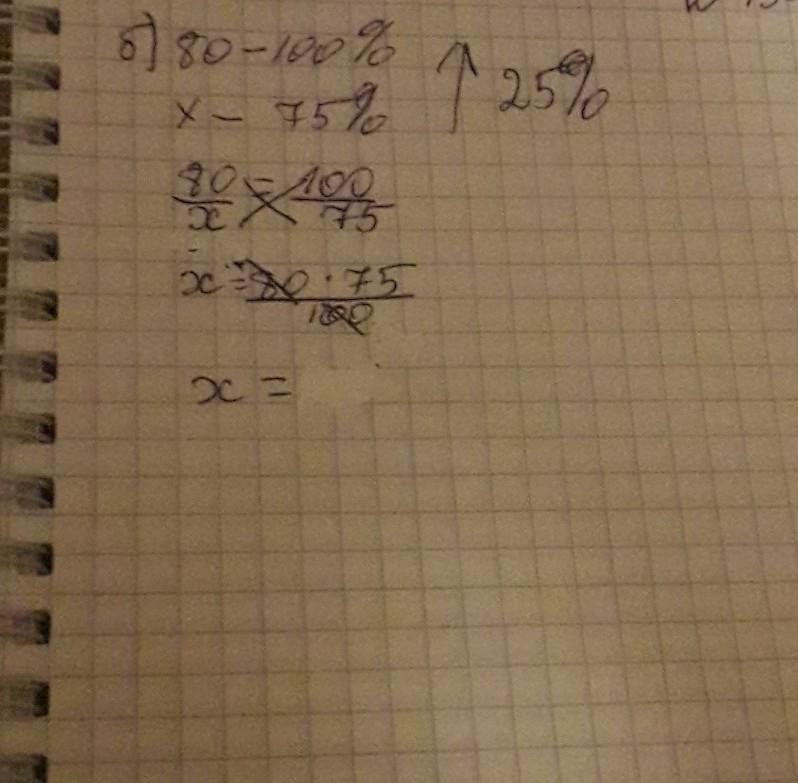 б) 80 - 100%
x - 75% ↑ 25%
80/x = 100/75
x = 80 · 75/100
x =